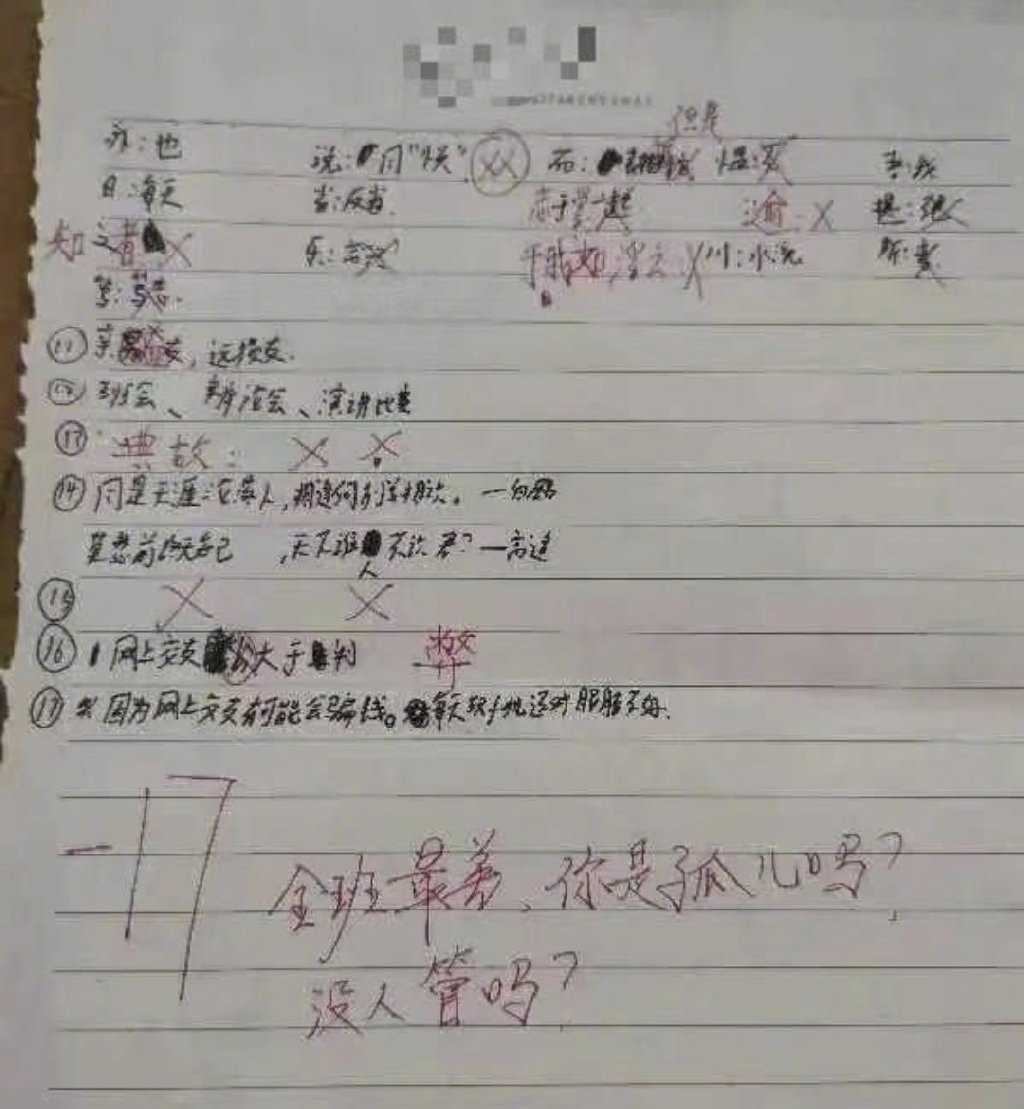 但是
亦：也 说：同"悦" 而： 温： 吾：我
日：每天 省：反省 逾 
知 乐：高兴 于我如浮云 川：水流
笃：
⑪ 亲 友，远损友.
⑫ 班会、辩论会、演讲比赛
⑬ 典故：
⑭ 同是天涯沦落人，相逢何必曾相识。—白居
莫愁前路无知己，天下谁人不识君？—高适
⑮
⑯ 网上交友 大于利 弊
⑰ 因为网上交友有可能会骗钱。每天玩手机还对眼睛不好.
-17 全班最差，你是孤儿吗？
没人管吗？